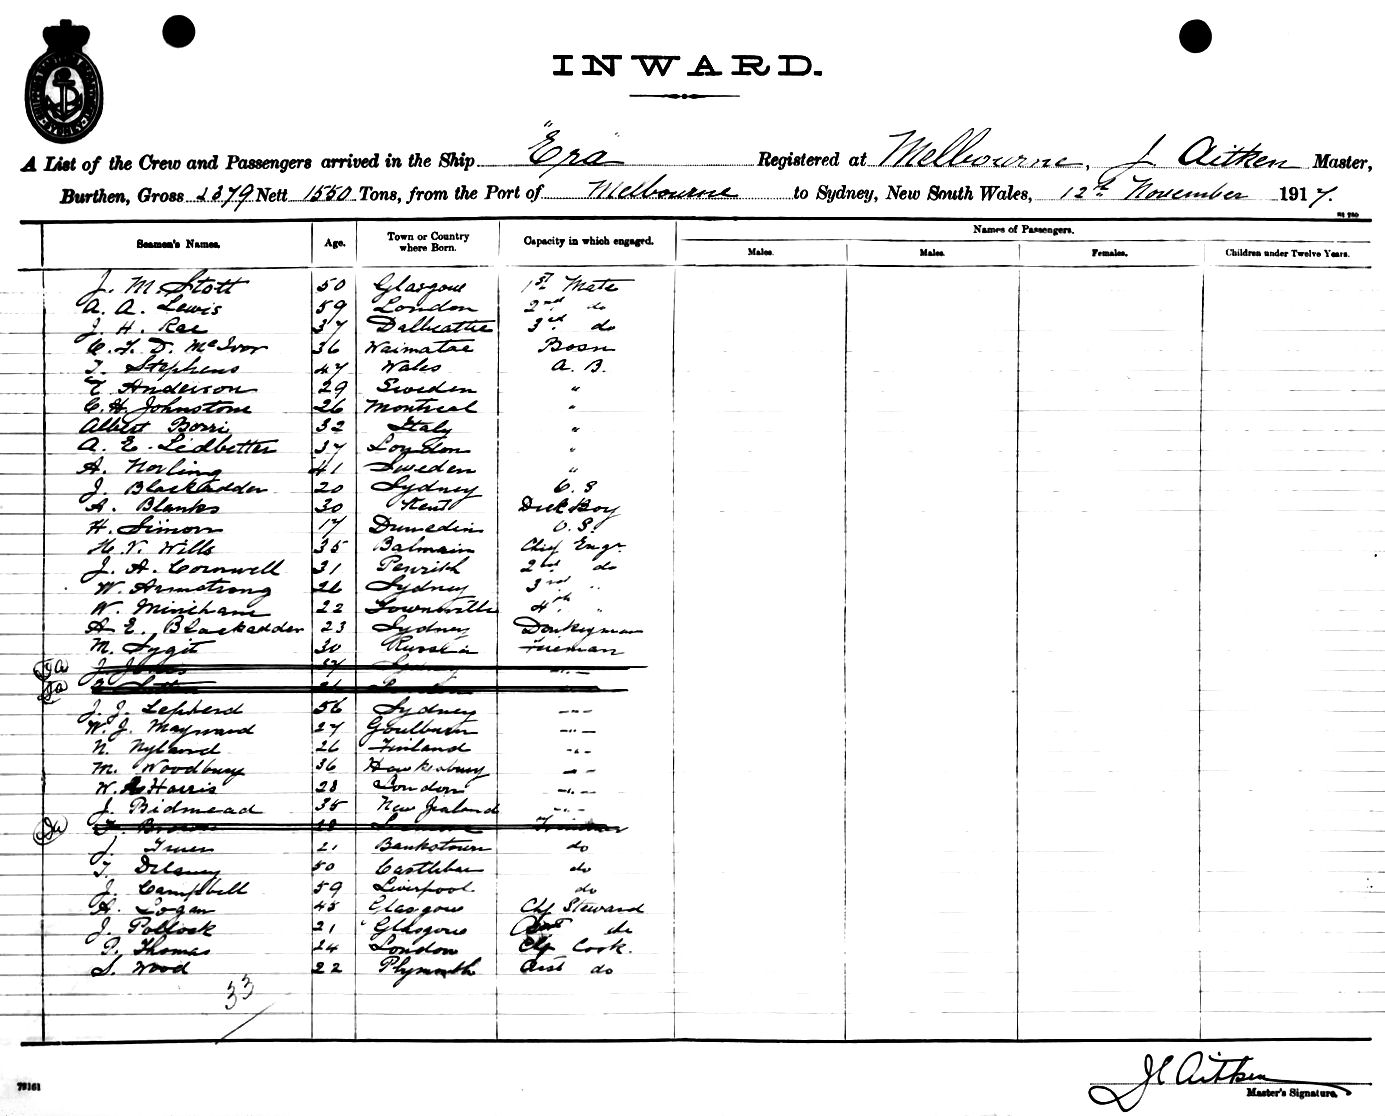 INWARD.
A List of the Crew and Passengers arrived in the Ship "Era" Registered at Melbourne, J Aitken Master,
Burthen, Gross 2379 Nett 1550 Tons, from the Port of Melbourne to Sydney, New South Wales, 12th November 1917.
Seamen's Names. Age. Town or Country where Born. Capacity in which engaged. Names of Passengers.
Males. Males. Females. Children under Twelve Years.
J. M. Stott 50 Glasgow 1st Mate
A. A. Lewis 59 London 2nd do
J. H. Rae 37 Dalbeattie 3rd do
C. F. D. McIvor 36 Waimatae Bosn
T. Stephens 47 Wales A. B.
E Anderson 29 Sweden "
C. H. Johnstone 26 Montreal "
Albert Borri 32 Italy "
A. E. Ledbetter 37 London "
A. Norling 41 Sweden "
J. Blackadder 20 Sydney O. S
A. Blanks 30 Kent Deck Boy
H. Simon 17 Dunedin O. S.
H. V. Wills 35 Balmain Chief Engr.
J. A. Cornwell 31 Penrith 2nd do
W. Armstrong 26 Sydney 3rd "
W. Minihane 22 Townsville 4th "
A E. Blackadder 23 Sydney Donkeyman
M. Sygit 30 Russia Fireman
J. Jones 37 Sydney -"-
J. J. Lepherd 56 Sydney -"-
W. J. Mayward 27 Goulburn -"-
N. Nyland 26 Finland -"-
M. Woodbury 36 Hawkesbury -"-
W. Harris 28 London -"-
J. Bidmead 35 New Zealand -"-
F. Brown 28 Trimmer
J. 21 Bankstown do
T. Delaney 50 Castlebar do
J. Campbell 59 Liverpool do
A. Logan 45 Glasgow Chf Steward
J. Pollock 21 Glasgow Asst do
P. Thomas 24 London Chf Cook.
S. Wood 22 Plymouth Asst do
33
J E Aitken
Master's Signature.
79161